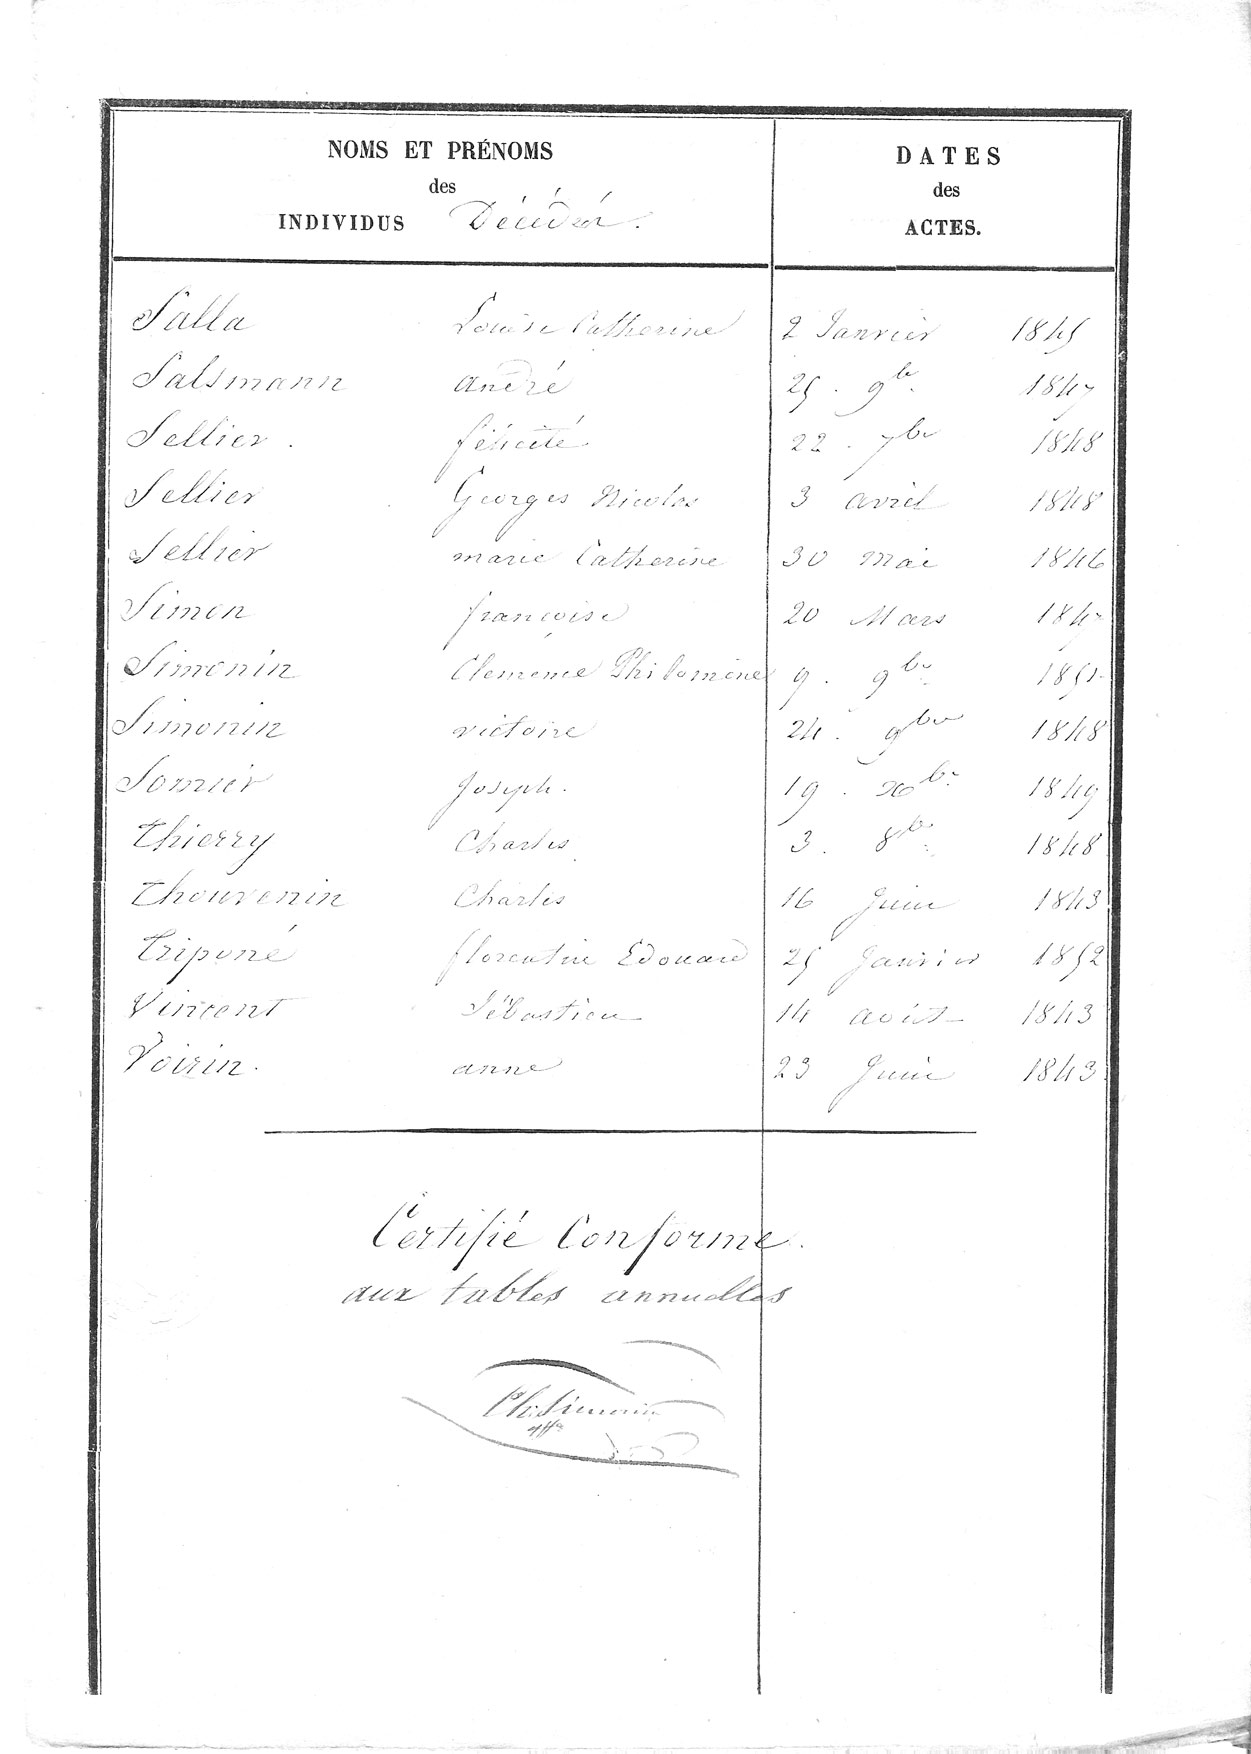 NOMS ET PRÉNOMS
des
INDIVIDUS Décédés.
DATES
des
ACTES.
Salla Louise Catherine 2 Janvier 1845
Salsmann andré 25. 9b. 1847
Sellier. félicité 22. 7bre 1848
Sellier Georges Nicolas 3 avril 1848
Sellier marie Catherine 30 mai 1846
Simon françoise 20 Mars 1847
Simonin Clemence Philomène 9. 9br 1851
Simonin victoire 24. 9bre 1848
Somier Joseph. 19. xbr 1849
Thierry Charles 3. 8br 1848
Thouvenin Charles 16 Juin 1843
Triponé florentin Edouard 25 Janvier 1852
Vincent Sébastien 14 août 1843
Voirin. anne 23 Juin 1843
Certifié Conforme.
aux tables annuelles
Simonin